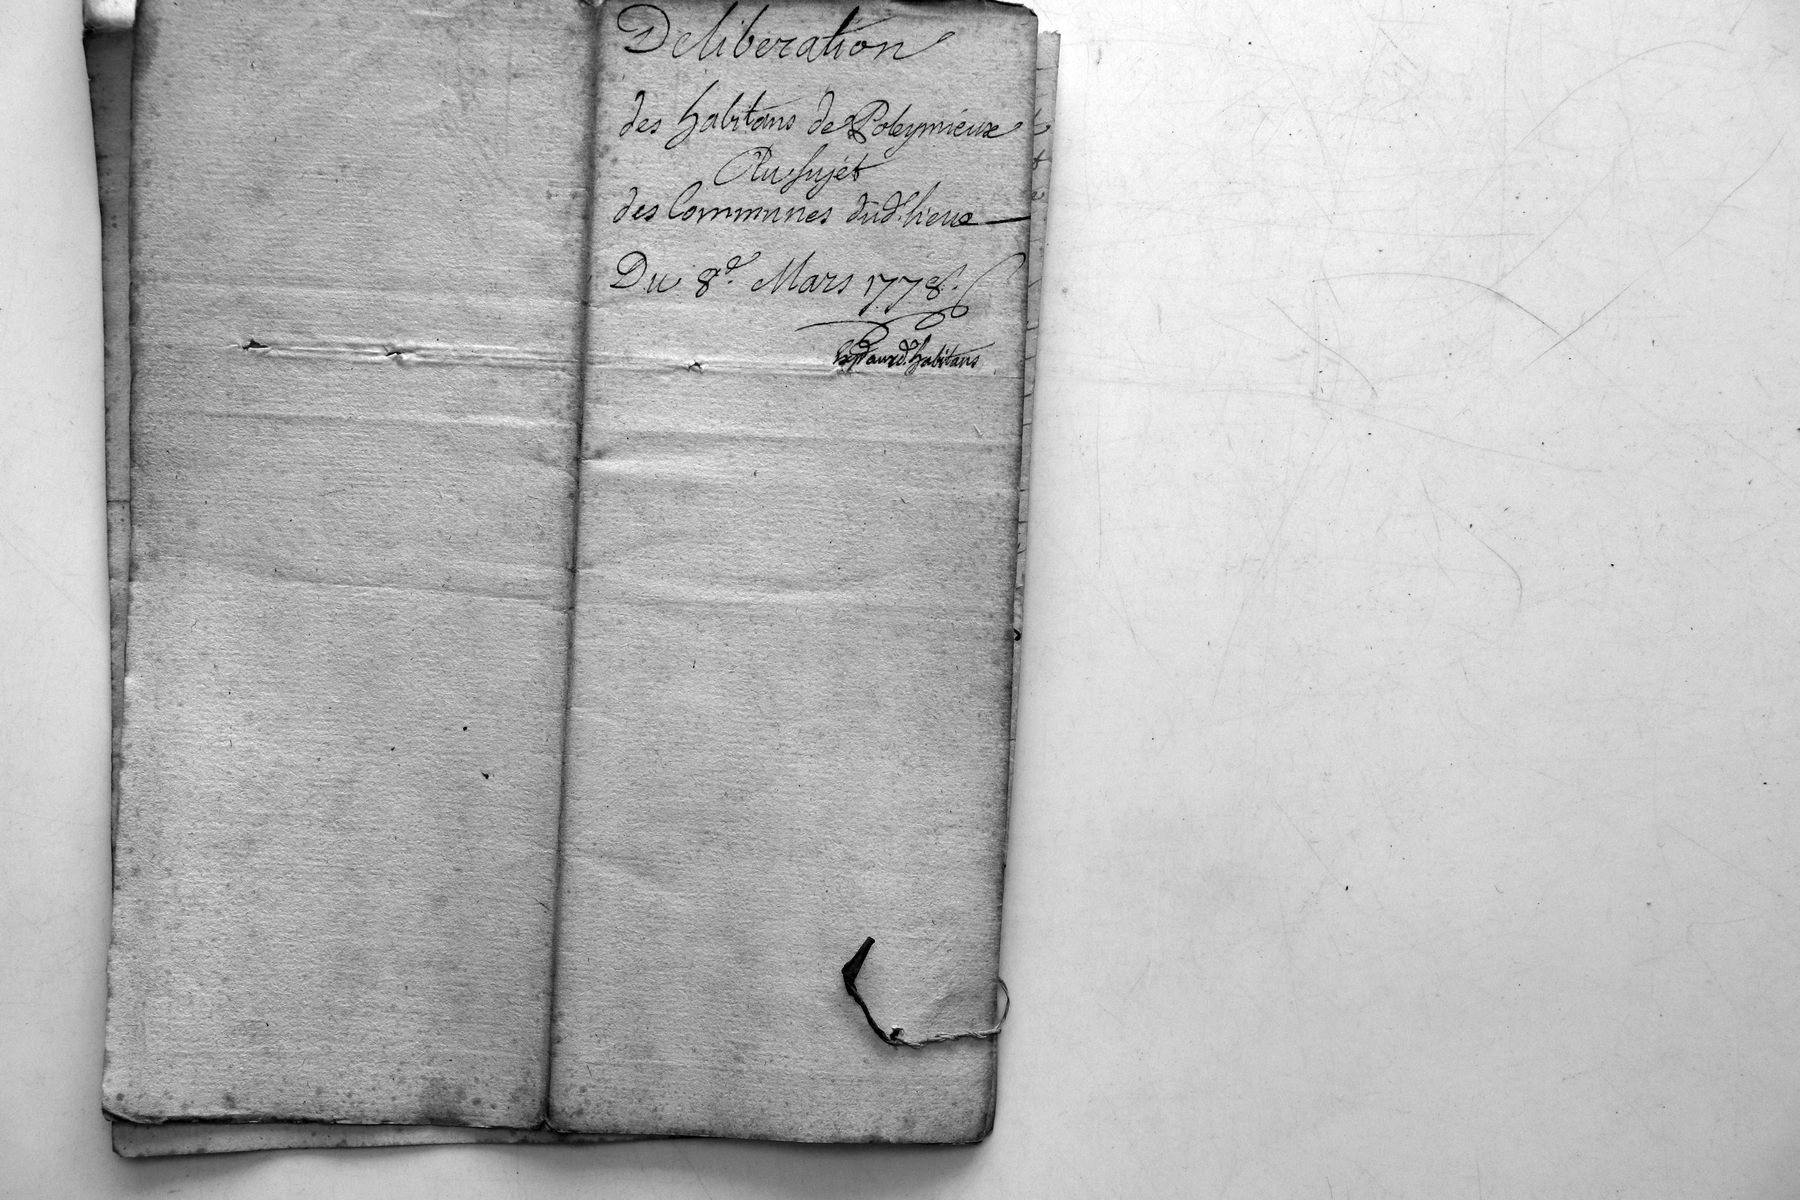 Deliberation
des habitans de Poleymieux
Au Sujet
des Communes dud. lieux
Du 8e. Mars 1778.
habitans